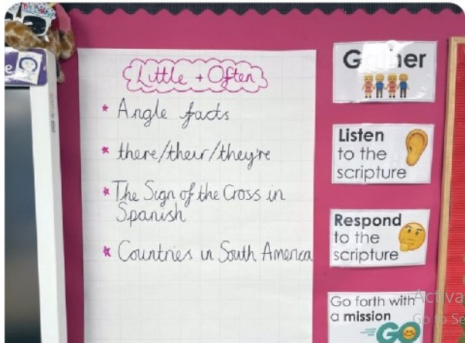 Little + Often
* Angle facts
* there/their/they're
* The Sign of the Cross in
Spanish
* Countries in South America
Gather
Listen
to the
scripture
Respond
to the
scripture
Go forth with
a mission
GO